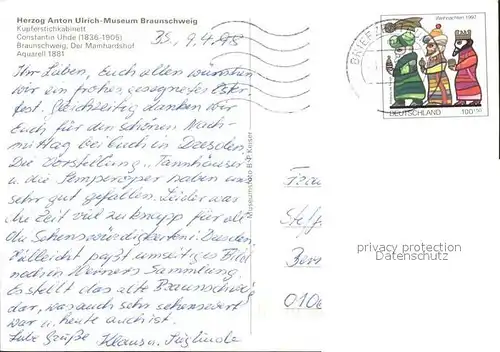 Herzog Anton Ulrich-Museum Braunschweig
Kupferstichkabinett
Constantin Uhde (1836-1905)
Braunschweig, Der Mumhardshof
Aquarell 1881
BS, 9.4.98
Ihr Lieben, Euch allen wünschen
wir ein frohes, gesegnetes Oster-
fest. Gleichzeitig danken wir
Euch für den schönen Nach-
mittag bei Euch in Dresden.
Die Vorstellung "Tannhäuser"
u. die Semperoper haben uns
sehr gut gefallen. Leider war
die Zeit viel zu knapp für all
die Sehenswürdigkeiten i. Dresden.
Vielleicht paßt umseitiges Bild
noch in Werners Sammlung.
Es stellt das alte Braunschweig
dar, was auch sehr sehenswert
war u. heute auch ist.
Liebe Grüße Klaus u. Sieglinde
Museumsfoto B.P. Keiser
BRIEF
Weihnachten 1997
DEUTSCHLAND 100+50
privacy protection
Datenschutz
010